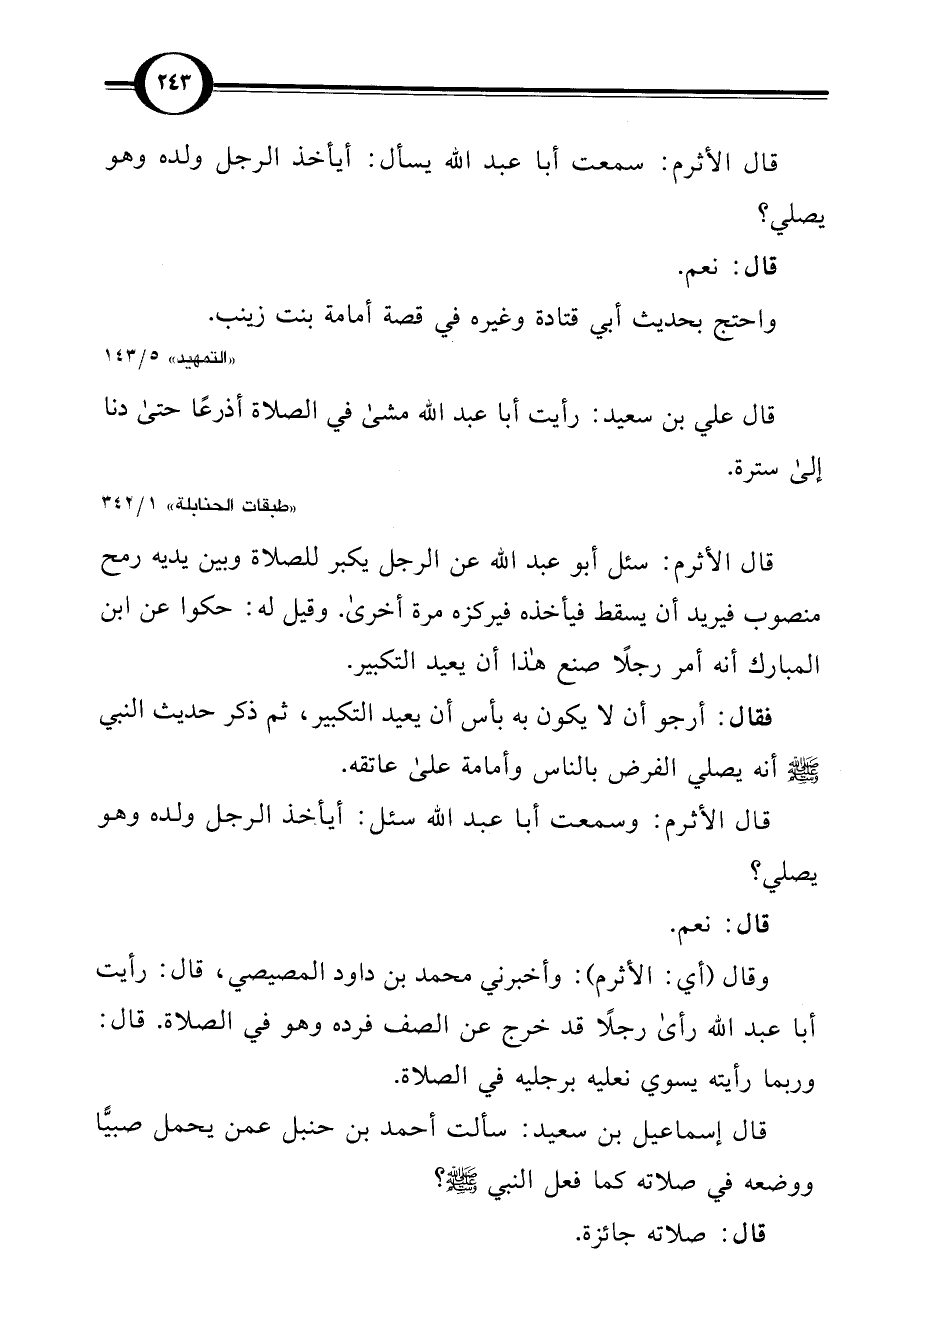 ٢٤٣
قال الأثرم: سمعت أبا عبد الله يسأل: أيأخذ الرجل ولده وهو
يصلي؟
قال: نعم.
واحتج بحديث أبي قتادة وغيره في قصة أمامة بنت زينب.
«التمهيد» ٥/١٤٣
قال علي بن سعيد: رأيت أبا عبد الله مشىٰ في الصلاة أذرعًا حتىٰ دنا
إلىٰ سترة.
«طبقات الحنابلة» ١/٣٤٢
قال الأثرم: سئل أبو عبد الله عن الرجل يكبر للصلاة وبين يديه رمح
منصوب فيريد أن يسقط فيأخذه فيركزه مرة أخرىٰ. وقيل له: حكوا عن ابن
المبارك أنه أمر رجلًا صنع هٰذا أن يعيد التكبير.
فقال: أرجو أن لا يكون به بأس أن يعيد التكبير، ثم ذكر حديث النبي
ﷺ أنه يصلي الفرض بالناس وأمامة علىٰ عاتقه.
قال الأثرم: وسمعت أبا عبد الله سئل: أيأخذ الرجل ولده وهو
يصلي؟
قال: نعم.
وقال (أي: الأثرم): وأخبرني محمد بن داود المصيصي، قال: رأيت
أبا عبد الله رأىٰ رجلًا قد خرج عن الصف فرده وهو في الصلاة. قال:
وربما رأيته يسوي نعليه برجليه في الصلاة.
قال إسماعيل بن سعيد: سألت أحمد بن حنبل عمن يحمل صبيًّا
ووضعه في صلاته كما فعل النبي ﷺ؟
قال: صلاته جائزة.